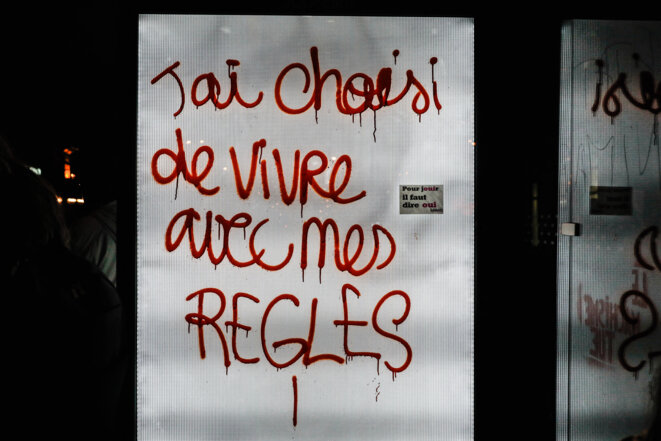 J'ai choisi
de vivre
avec mes
REGLES
!
Pour jouir
il faut
dire oui